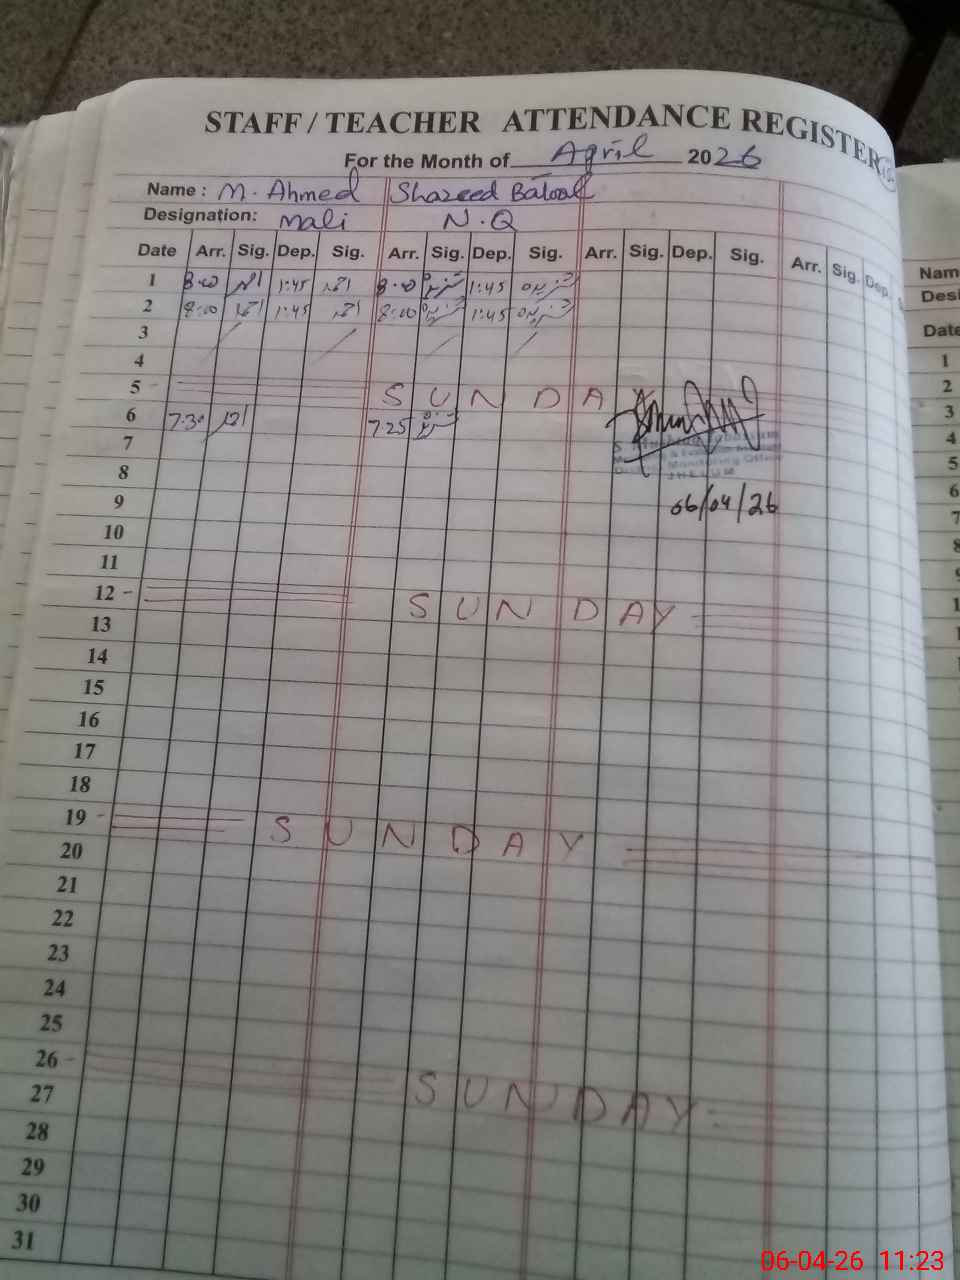 STAFF / TEACHER ATTENDANCE REGISTER
For the Month of April 2026
Name : M. Ahmed Shazeed Batool
Designation: Mali N.Q
Date Arr. Sig. Dep. Sig. Arr. Sig. Dep. Sig. Arr. Sig. Dep. Sig. Arr. Sig. Dep.
1 8:00 احمد 1:45 احمد 8:00 1:45
2 8:00 احمد 1:45 احمد 8:00 1:45
3
4
5 SUNDAY
6 7:30 احمد 7 25
7
District Monitoring Office
JHELUM
8
9 06/04/26
10
11
12 SUNDAY
13
14
15
16
17
18
19 SUNDAY
20
21
22
23
24
25
26 SUNDAY
27
28
29
30
31
Nam
Desi
Date
1
2
3
4
5
6
7
06-04-26 11:23